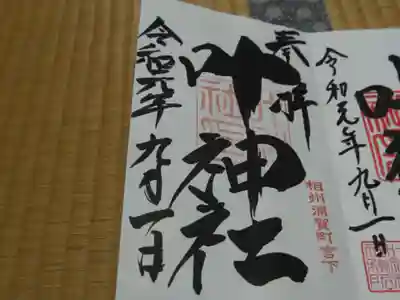 奉拝
叶神社
相州浦賀町宮下
令和元年九月一日
令和元年九月一日
叶